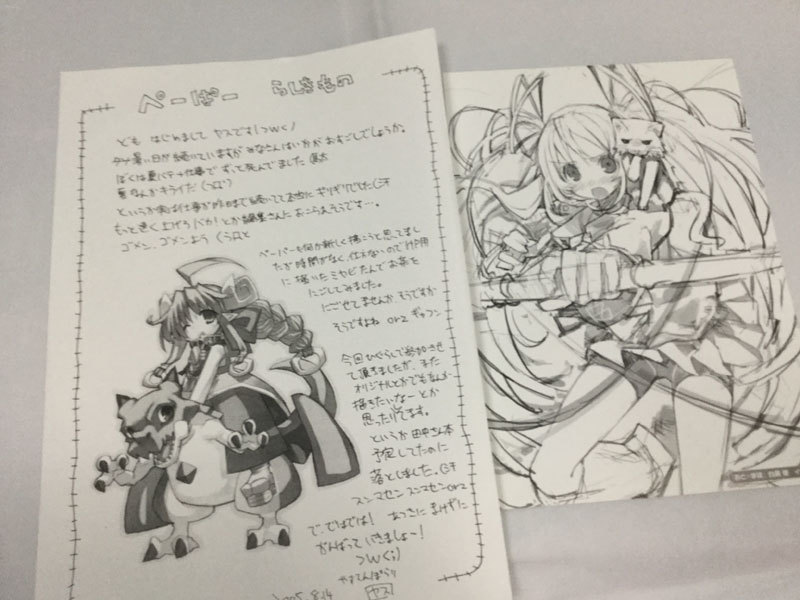 ぺーぱー らしきもの
ども はじめまして ヤスです!つwく)
暑い日が続いていますが みなさんはいかがおすごしでしょうか。
ぼくは夏バテ→仕事で ずって死んでました
夏なんかキライだ
というか実は仕事が昨日まで続いてて本当にギリギリでした
もっと早く上げろ!バカ!とか編集さんにおこらえそうです…。
ゴメン、ゴメンよう
ペーパーを何か新しく描こうと思ってまし
たが時間がなく、仕方ないのでHP用
に描いたミヤビたんでお茶を
にごしてみました。
にごせてませんか。そうですか
そうですよね orz ギャフン
今回ひぐらしで参加させ
て頂きましたが、また
オリジナルとかでもなんか
描きたいなーとか
思ったりしてます。
というか 田中さん本
予定してたのに
落としました。
スンマセン スンマセンorz
で、ではでは! あつさに まけずに
がんばって いきましょー!
つwく;)
やすてんぱらり
2005.8.14
ヤス